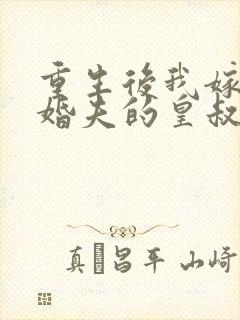 重生後我嫁
婚夫的皇叔
真 昌平 山崎